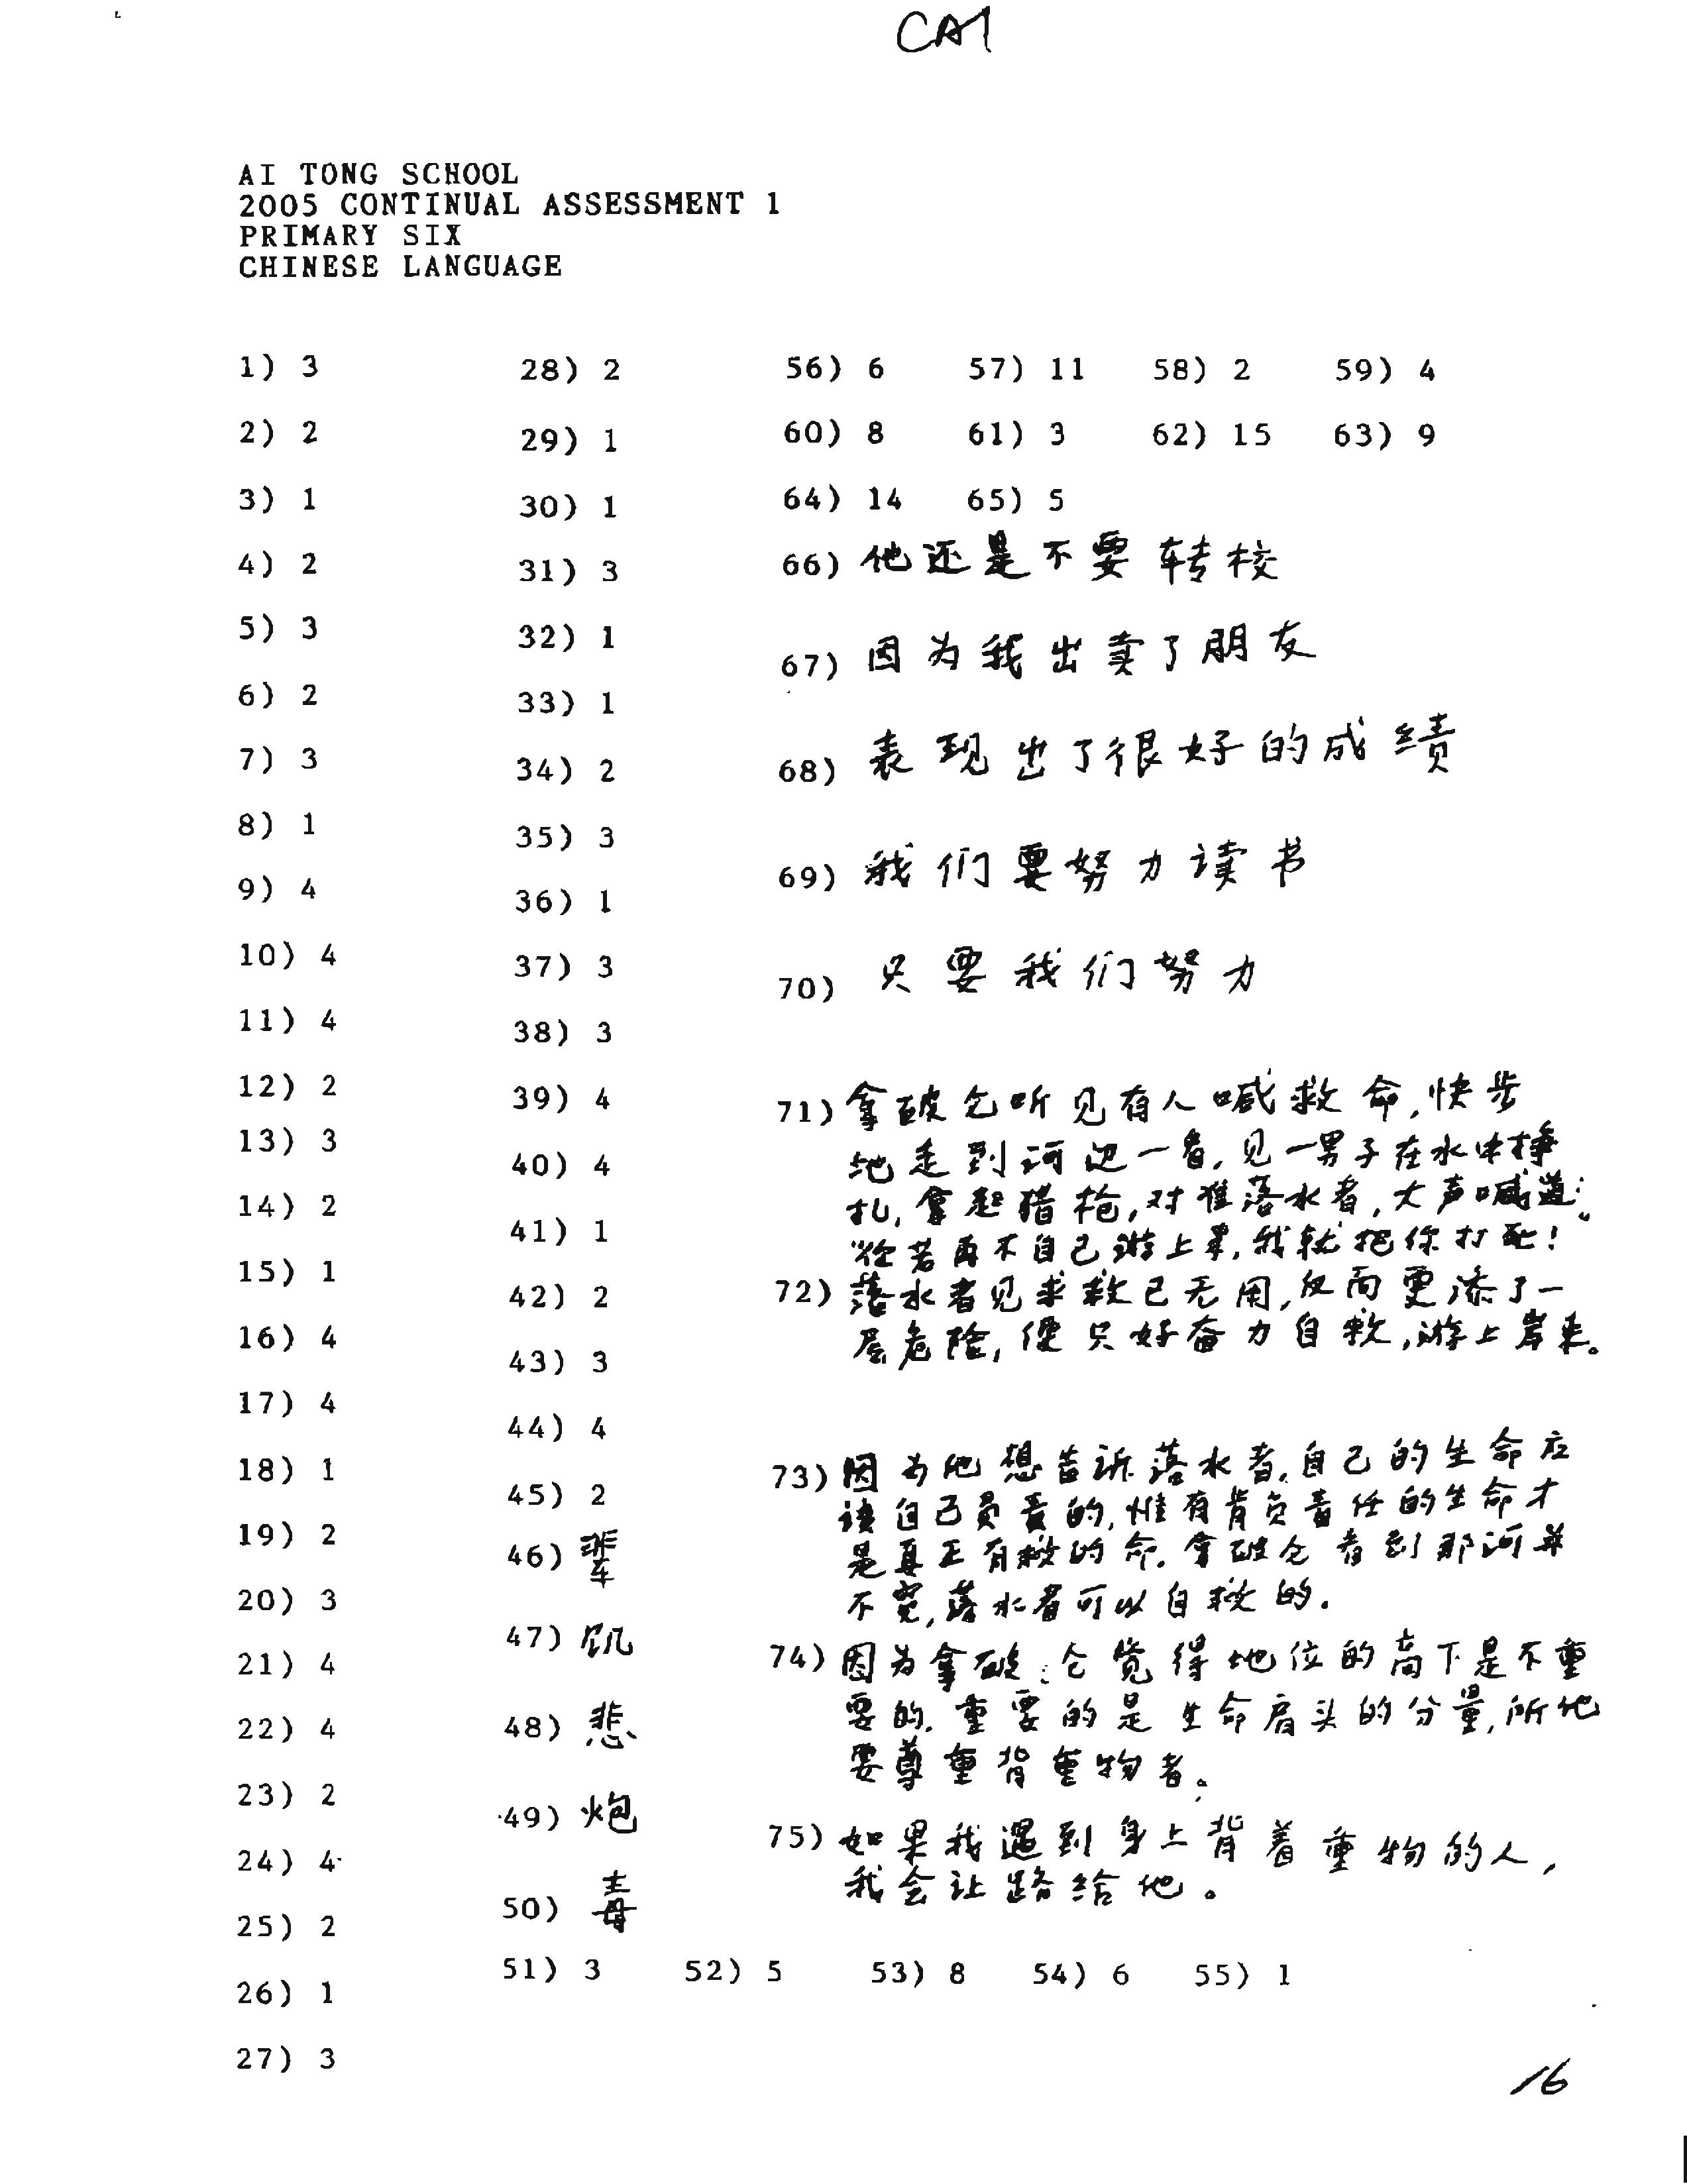 CA1
AI TONG SCHOOL
2005 CONTINUAL ASSESSMENT 1
PRIMARY SIX
CHINESE LANGUAGE
1) 3
2) 2
3) 1
4) 2
5) 3
6) 2
7) 3
8) 1
9) 4
10) 4
11) 4
12) 2
13) 3
14) 2
15) 1
16) 4
17) 4
18) 1
19) 2
20) 3
21) 4
22) 4
23) 2
24) 4
25) 2
26) 1
27) 3
28) 2
29) 1
30) 1
31) 3
32) 1
33) 1
34) 2
35) 3
36) 1
37) 3
38) 3
39) 4
40) 4
41) 1
42) 2
43) 3
44) 4
45) 2
46) 辈
47) 饥
48) 悲
49) 炮
50) 毒
51) 3 52) 5 53) 8 54) 6 55) 1
56) 6 57) 11 58) 2 59) 4
60) 8 61) 3 62) 15 63) 9
64) 14 65) 5
66) 他还是不要转校
67) 因为我出卖了朋友
68) 表现出了很好的成绩
69) 我们要努力读书
70) 只要我们努力
71) 拿破仑听见有人喊救命,快步
地走到河边一看,见一男子在水中挣
扎,拿起猎枪,对准落水者,大声喊道:
“你若再不自己游上来,我就把你打死!”
72) 落水者见求救已无用,反而更添了一
层危险,便只好奋力自救,游上岸来。
73) 因为他想告诉落水者,自己的生命应
该自己负责的,惟有肯负责任的生命才
是真正有救的命.拿破仑看到那河并
不宽,落水者可以自救的.
74) 因为拿破仑觉得地位的高下是不重
要的.重要的是生命肩头的分量,所他
要尊重背重物者。
75) 如果我遇到身上背着重物的人,
我会让路给他。
16